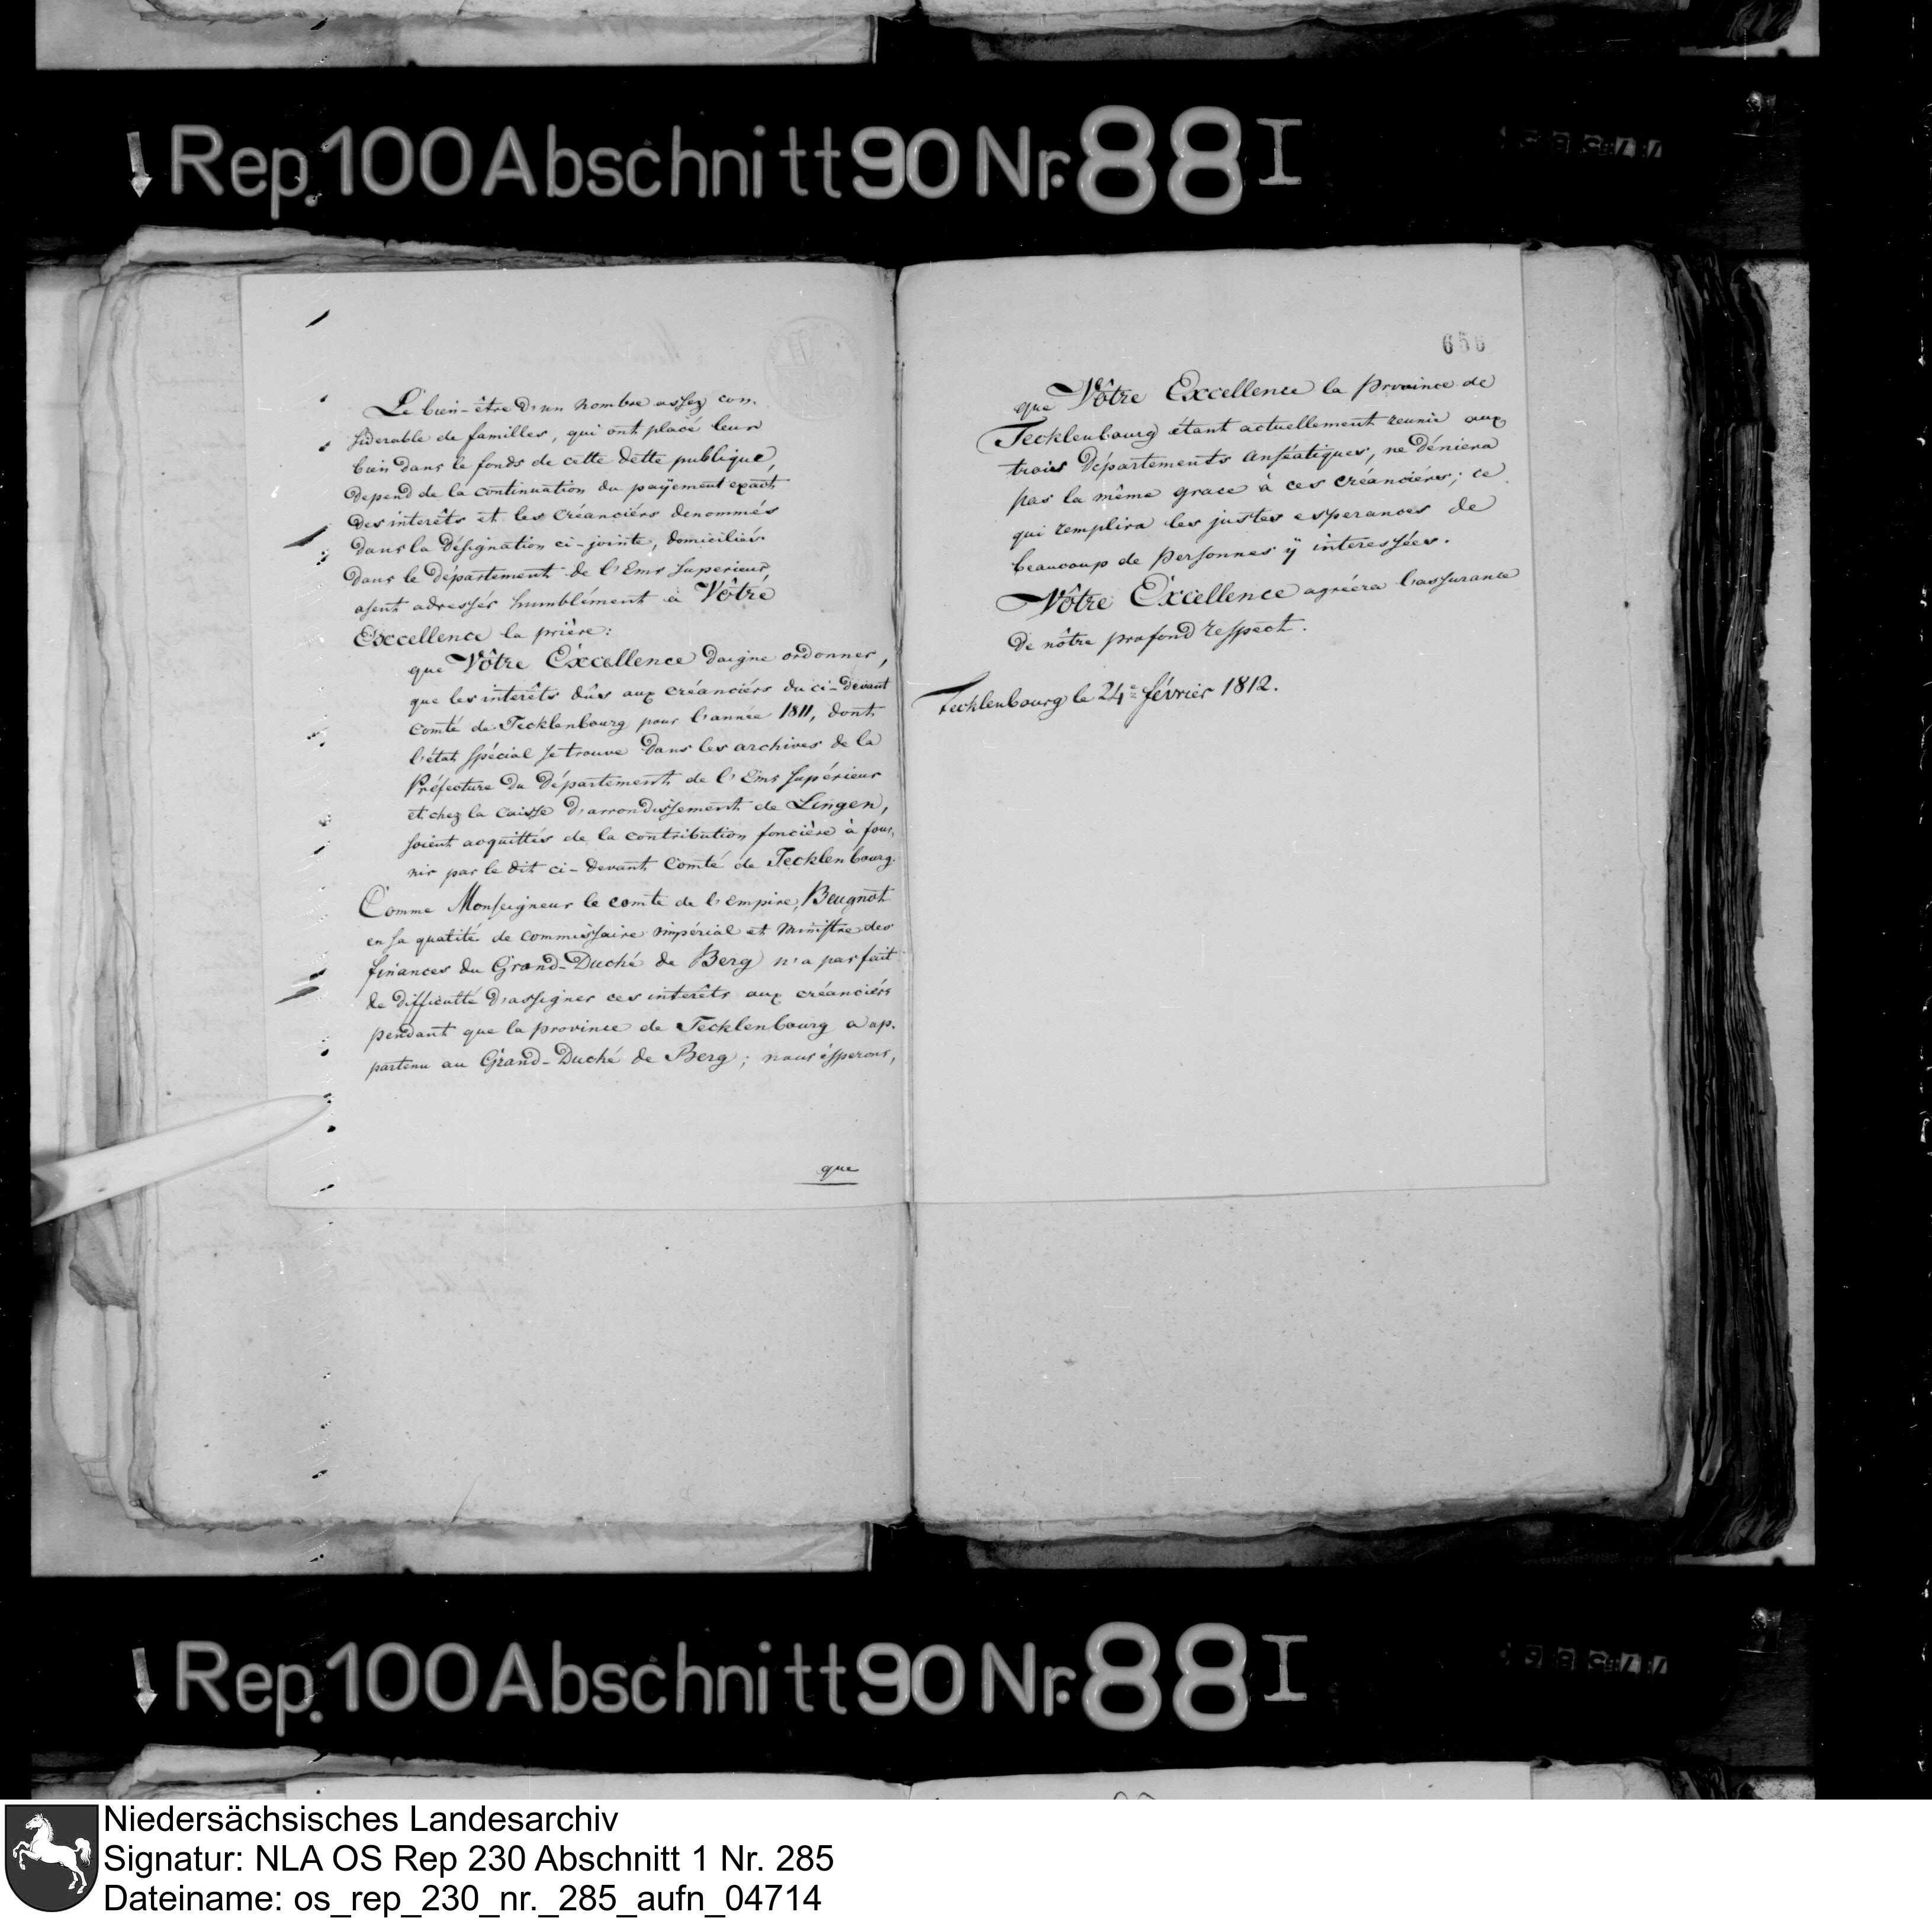 Rep. 100 Abschnitt 90 Nr. 88 I
Le bien-être d'un nombre assez con-
siderable de familles, qui ont placé leur
bien dans le fonds de cette dette publique,
depend de la continuation du payement exact
des interêts et les créanciérs denommés
dans la Désignation ci-jointe, domiciliés
dans le département de l'Ems superieur
osent adresser humblément à Vôtré
Excellence la prière:
que Vôtre Excellence daigne ordonner,
que les interêts dûs aux créanciérs du ci-devant
comté de Tecklenbourg pour l'année 1811, dont
l'état spécial se trouve dans les archives de la
Préfecture du département de l'Ems supérieur
et chez la caisse d'arrondissement de Lingen,
soient acquittés de la contribution foncière à four-
nir par le dit ci-devant Comté de Tecklenbourg.
Comme Monseigneur le comte de l'empire, Beugnot
en sa qualité de commissaire impérial et Ministre des
finances du Grand-Duché de Berg n'a pas fait
de difficulté d'assigner ces interêts aux créanciérs
pendant que la province de Tecklenbourg a ap-
partenu au Grand-Duché de Berg; nous ésperons,
que
656
que Vôtre Excellence la province de
Tecklenbourg étant actuellement reunie aux
trois départements anséatiques, ne déniera
pas la même grace à ces créanciérs; ce
qui remplira les justes esperances de
beaucoup de personnes ÿ interessées.
Vôtre Excellence agréera l'assurance
de nôtre profond respect.
Tecklenbourg le 24e février 1812.
Rep. 100 Abschnitt 90 Nr. 88 I
Niedersächsisches Landesarchiv
Signatur: NLA OS Rep 230 Abschnitt 1 Nr. 285
Dateiname: os_rep_230_nr._285_aufn_04714